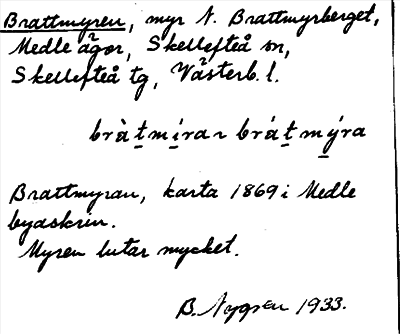 Brattmyren, myr N. Brattmyrberget,
Medle ägor, Skellefteå sn,
Skellefteå tg, Västerb. l.
bràt̲mi̲ran brát̲mý̲ra
Brattmyran, karta 1869 i Medle
byaskrin.
Myren lutar mycket.
B. Nygren 1933.